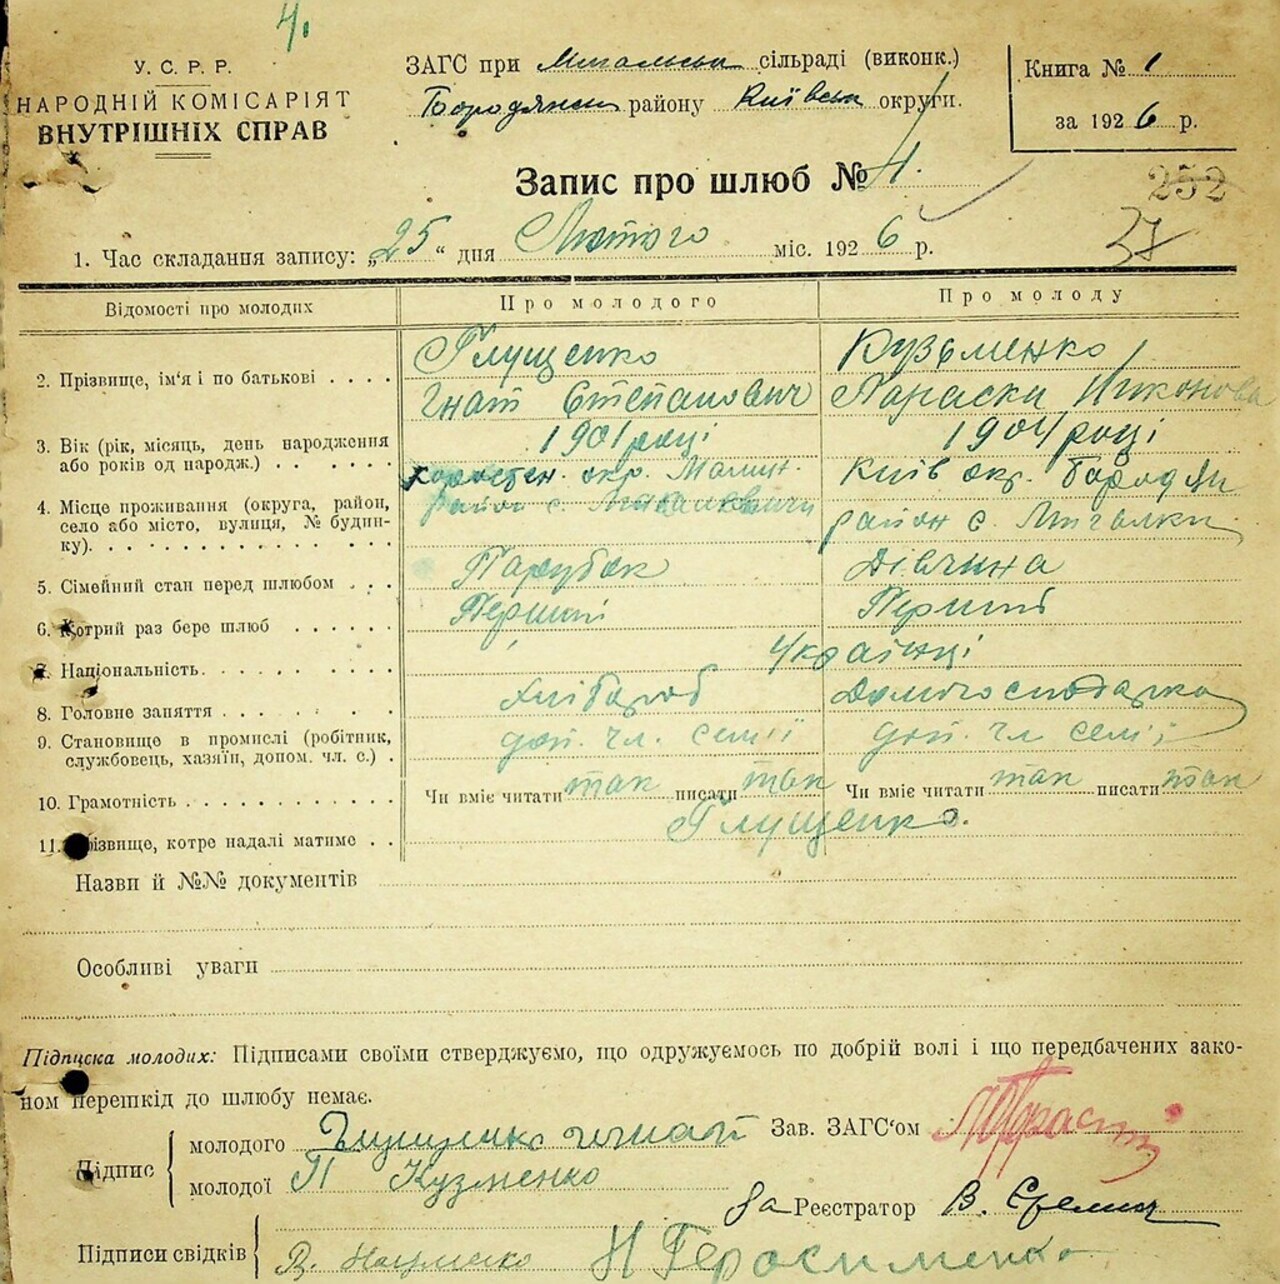 4.
У. С. Р. Р.
НАРОДНІЙ КОМІСАРІЯТ
ВНУТРІШНІХ СПРАВ
ЗАГС при сільраді (виконк.)
Бородянськ району Київськ округи.
Книга № 1
за 1926 р.
Запис про шлюб № 4.
252
37
1. Час складання запису: „25“ дня Лютого міс. 1926 р.
Відомості про молодих Про молодого Про молоду
2. Прізвище, ім'я і по батькові . . . . Глущенко Кузьменко
Гнат Степанович Параски Никонова
3. Вік (рік, місяць, день народження або років од народж.) . . . . . . 1901 році 1904 році
4. Місце проживання (округа, район, село або місто, вулиця, № будинку). . . . . . . . . . . . . . . коростен. окр. Малин. Київ окр. Бородян
район с. район с. Мигалки
5. Сімейний стан перед шлюбом . . . Парубок Дівчина
6. Котрий раз бере шлюб . . . . . . Перший Перший
7. Національність. . . . . . . . . . . Українці
8. Головне заняття . . . . . . . . . Хлібороб Домогосподарка
9. Становище в промислі (робітник, службовець, хазяїн, допом. чл. с.) . доп. чл. семії доп. чл семії
10. Грамотність . . . . . . . . . . . . Чи вміє читати так писати так Чи вміє читати так писати так
11. Прізвище, котре надалі матиме . . Глущенко.
Назви й №№ документів
Особливі уваги
Підписка молодих: Підписами своїми стверджуємо, що одружуємось по добрій волі і що передбачених зако-
ном перешкід до шлюбу немає.
Підпис молодого Глущенко гнат Зав. ЗАГС'ом
молодої П Кузменко
за Реєстратор В.
Підписи свідків В. Н Герасименко